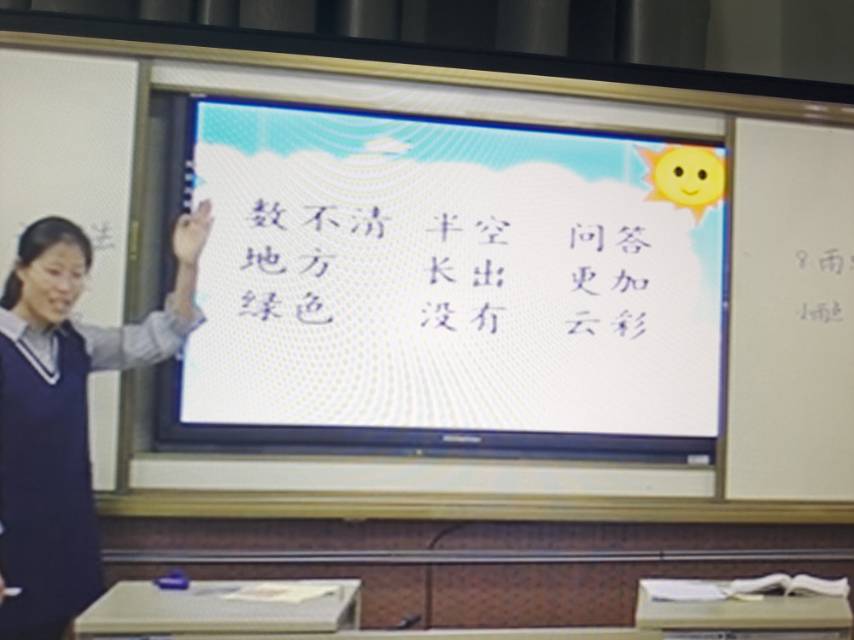 数不清 半空 问答
地方 长出 更加
绿色 没有 云彩
8 雨